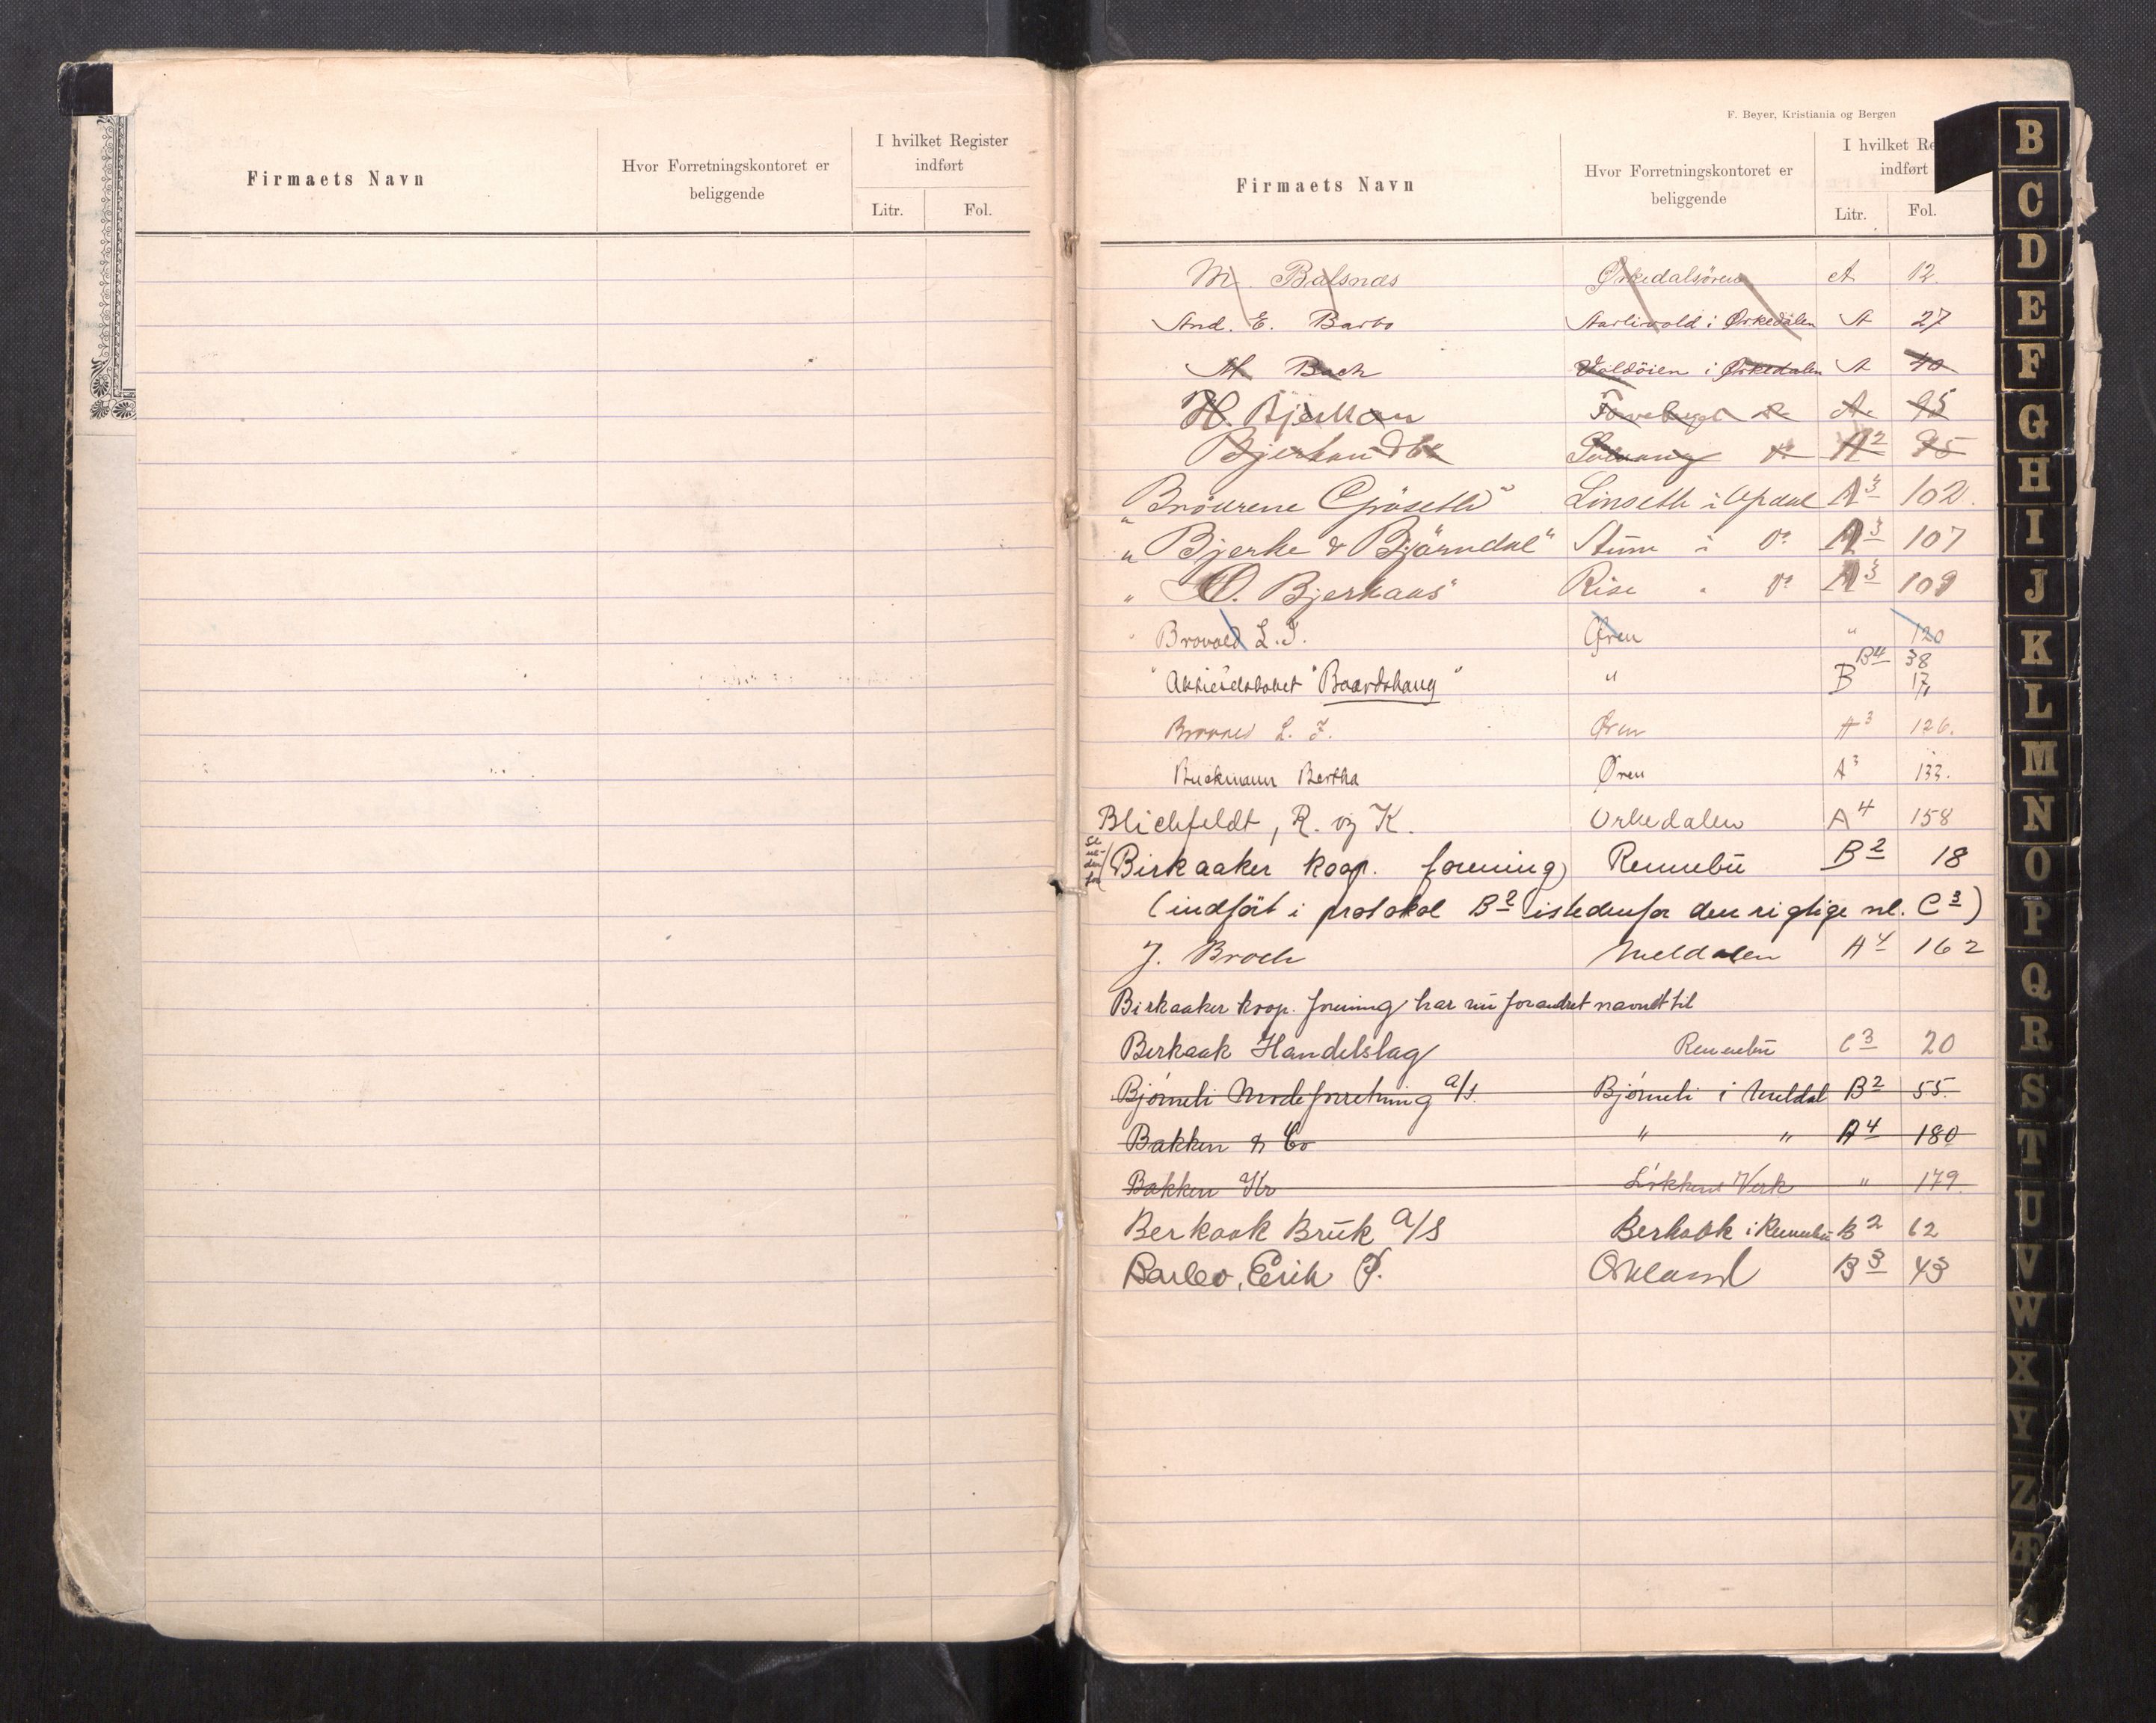 Firmaets Navn
Hvor Forretningskontoret er beliggende
I hvilket Register indført
Litr. Fol.
F. Beyer, Kristiania og Bergen
Firmaets Navn
Hvor Forretningskontoret er beliggende
I hvilket Re
indført
Litr. Fol.
M. Balsnæs Ørkedalsøren A 12.
And. E. Barbo i Ørkedalen A 27
M. Bach i Ørkedalen A 40
H. Bjerkan A. 95
Bjerkan A2 95
"Brödrene Gräseth" i Opdal A3 102.
"Bjerke & Bjørndal" Stuen i do A3 107
" O. Bjerkaas" Rise " do A3 109
" Brovold L. J. Øren " 120
B4 38
" Aktieselskabet "Baardshaug" " B 17
Brovold L. J. Øren A3 126.
Buckmann Bertha Øren A3 133.
Blichfeldt, R. og K. Orkedalen A4 158
Se ne- den for
Birkaaker koop. forening Rennebu B2 18
(indført i protokol B2 istedenfor den rigtige nl. C3)
J. Broch Meldalen A4 162
Birkaaker koop. forening har nu forandret navnet til
Berkaak Handelslag Rennebu C3 20
Bjørnli Modeforretning a/s. Bjørnli i Meldal B2 55.
Bakken & Co " " A4 180
Bakken Kr Løkken Verk " 179.
Berkaak Bruk a/s Berkaak i Rennebu B2 62
Barbo, Erik P. Orkland B3 43
B
C
D
E
F
G
H
I
J
K
L
M
N
O
P
Q
R
S
T
U
V
W
X
Y
Z
Æ